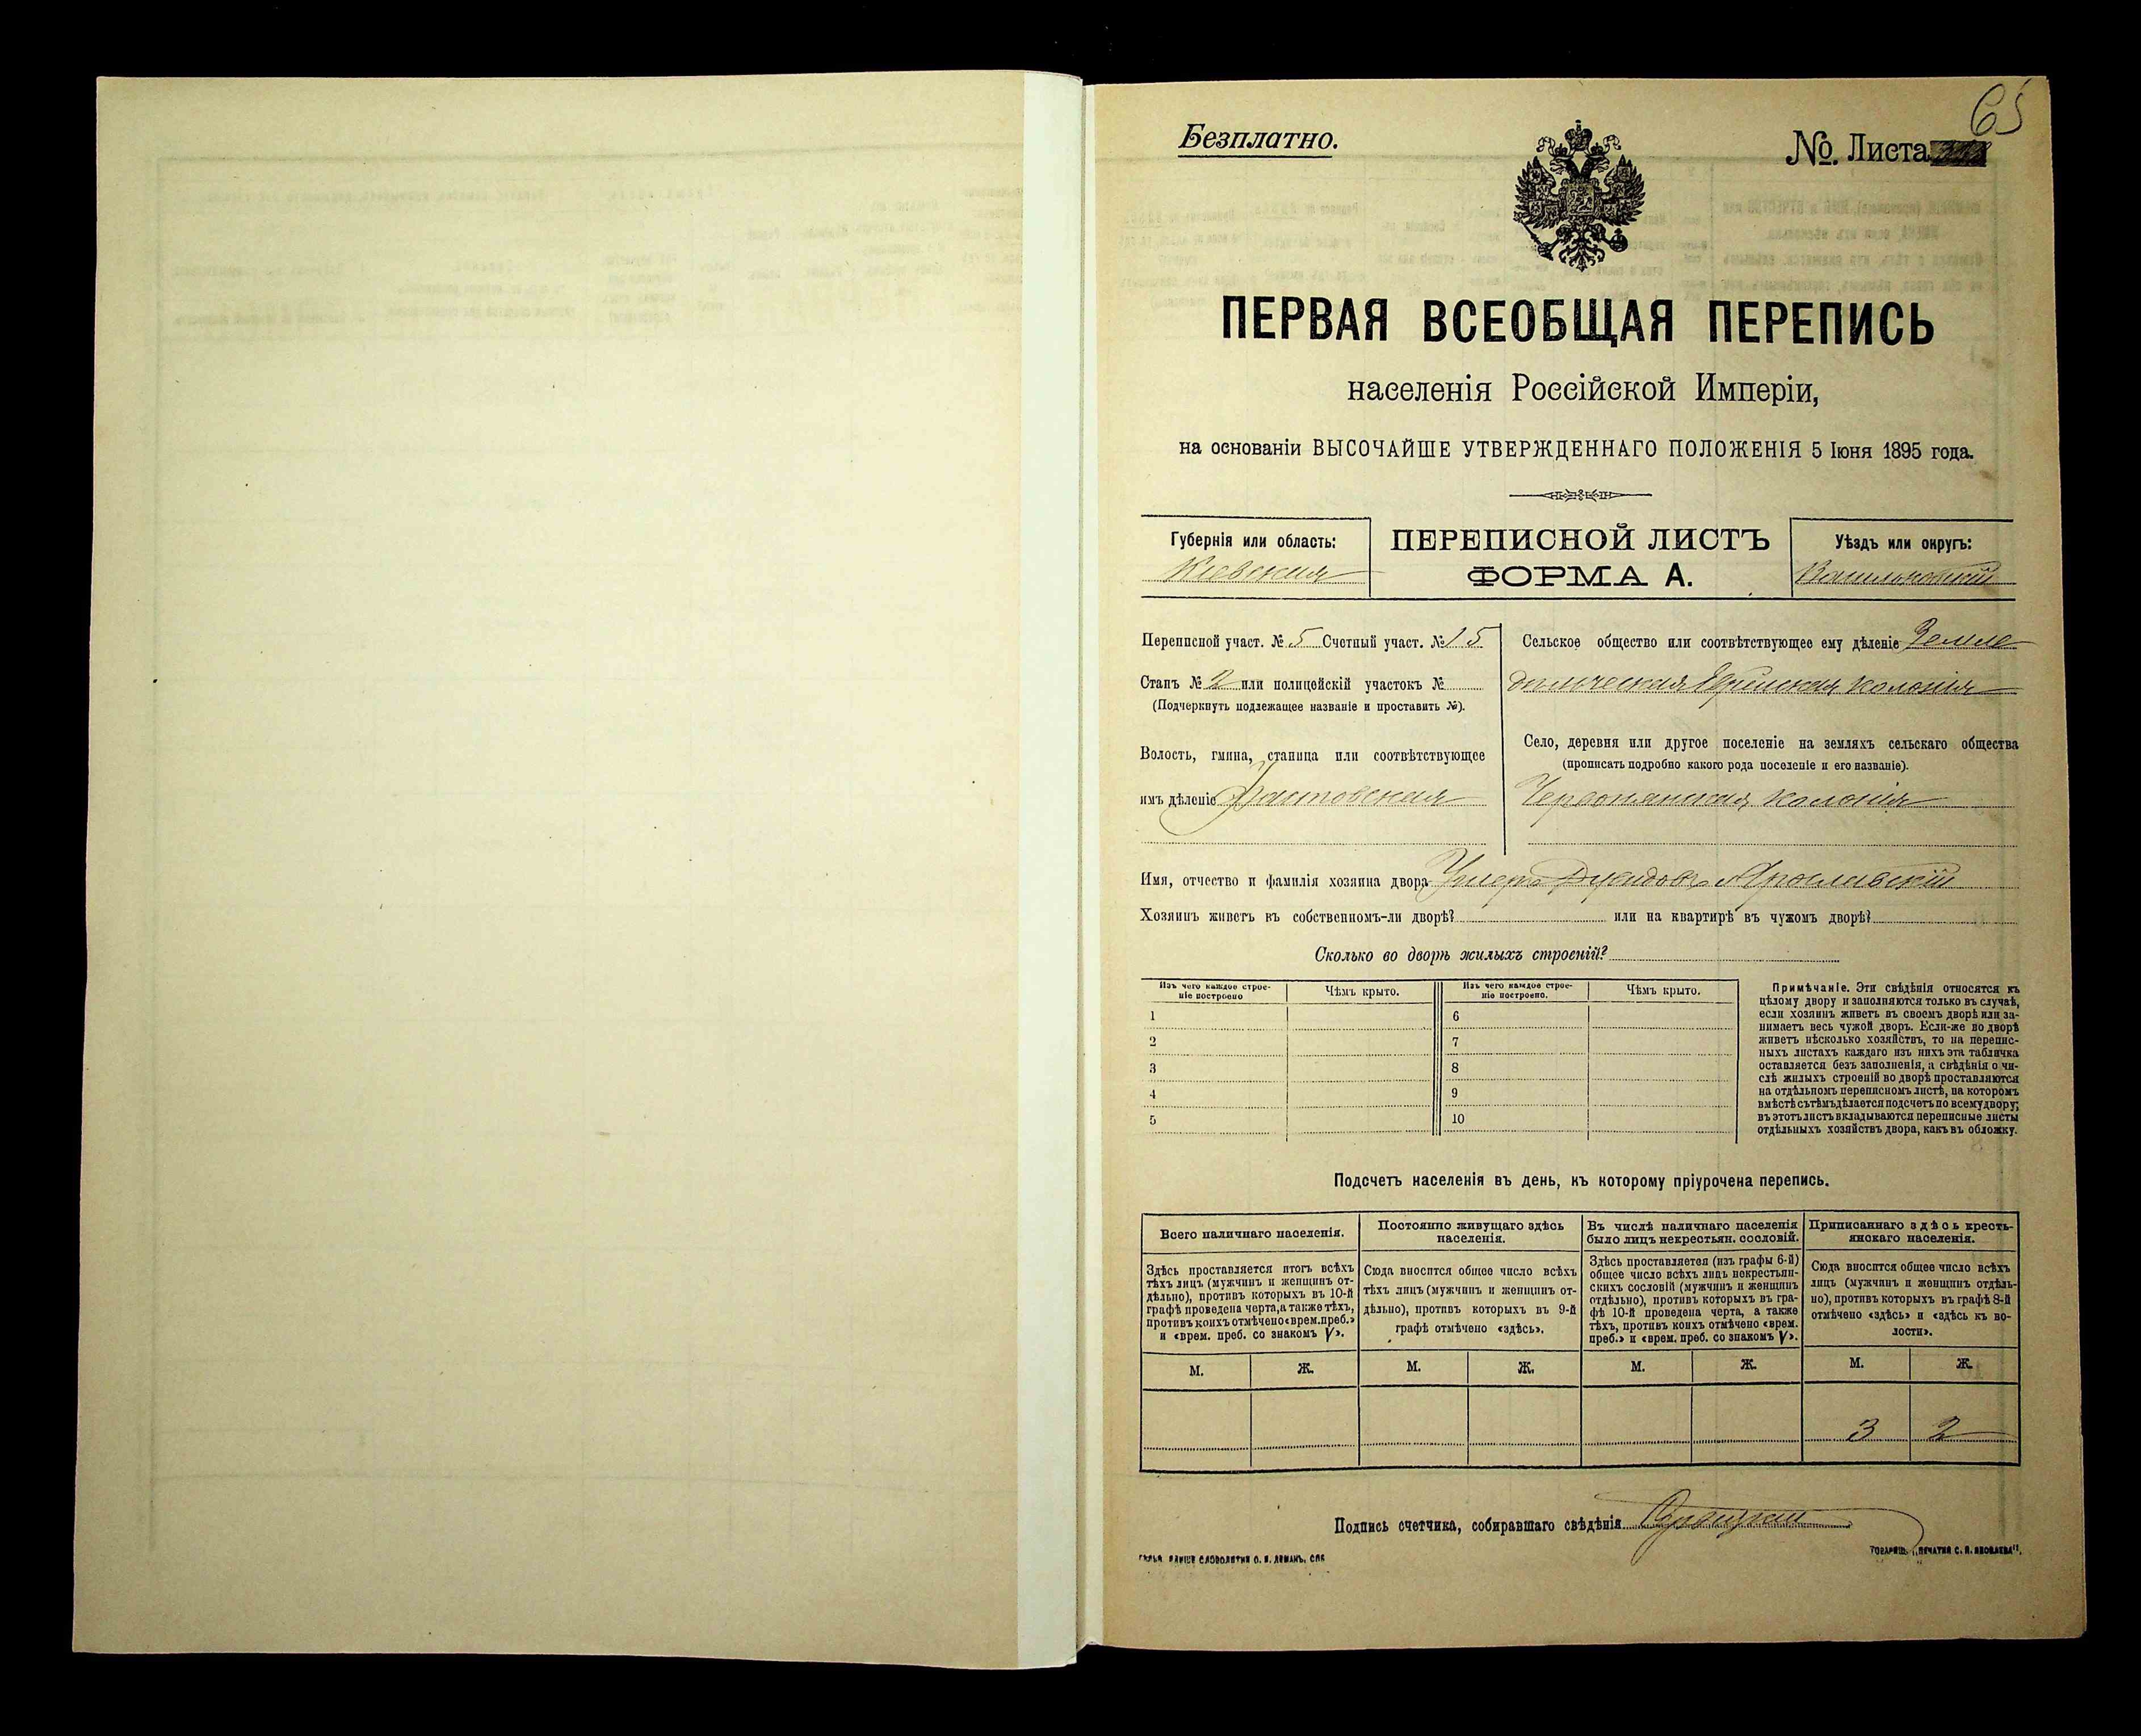 65
Безплатно.
№ Листа
ПЕРВАЯ ВСЕОБЩАЯ ПЕРЕПИСЬ
населенія Россійской Имперіи,
на основаніи ВЫСОЧАЙШЕ УТВЕРЖДЕННАГО ПОЛОЖЕНІЯ 5 Іюня 1895 года.
Губернія или область:
Кіевская
ПЕРЕПИСНОЙ ЛИСТЪ
ФОРМА А.
Уѣздъ или округъ:
Васильковскій
Переписной участ. № 5 Счетный участ. № 15
Станъ № 2 или полицейскій участокъ №
(Подчеркнуть подлежащее названіе и проставить №).
Волость, гмина, станица или соотвѣтствующее
имъ дѣленіе Фастовская
Сельское общество или соотвѣтствующее ему дѣленіе Земле
дѣльческая Еврейская колонія
Село, деревня или другое поселеніе на земляхъ сельскаго общества
(прописать подробно какого рода поселеніе и его названіе).
Червонянская колонія
Имя, отчество и фамилія хозяина двора Ярославскій
Хозяинъ живетъ въ собственномъ-ли дворѣ? или на квартирѣ въ чужомъ дворѣ?
Сколько во дворѣ жилыхъ строеній?
Изъ чего каждое строе-
ніе построено
Чѣмъ крыто.
Изъ чего каждое строе-
ніе построено.
Чѣмъ крыто.
1 6
2 7
3 8
4 9
5 10
Примѣчаніе. Эти свѣдѣнія относятся къ
цѣлому двору и заполняются только въ случаѣ,
если хозяинъ живетъ въ своемъ дворѣ или за-
нимаетъ весь чужой дворъ. Если-же во дворѣ
живетъ нѣсколько хозяйствъ, то на перепис-
ныхъ листахъ каждаго изъ нихъ эта табличка
оставляется безъ заполненія, а свѣдѣнія о чи-
слѣ жилыхъ строеній во дворѣ проставляются
на отдѣльномъ переписномъ листѣ, на которомъ
вмѣстѣ съ тѣмъ дѣлается подсчетъ по всему двору;
въ этотъ листъ вкладываются переписные листы
отдѣльныхъ хозяйствъ двора, какъ въ обложку.
Подсчетъ населенія въ день, къ которому пріурочена перепись.
Всего наличнаго населенія.
Здѣсь проставляется итогъ всѣхъ
тѣхъ лицъ (мужчинъ и женщинъ от-
дѣльно), противъ которыхъ въ 10-й
графѣ проведена черта, а также тѣхъ,
противъ коихъ отмѣчено «врем. преб.»
и «врем. преб. со знакомъ V».
Постоянно живущаго здѣсь
населенія.
Сюда вносится общее число всѣхъ
тѣхъ лицъ (мужчинъ и женщинъ от-
дѣльно), противъ которыхъ въ 9-й
графѣ отмѣчено «здѣсь».
Въ числѣ наличнаго населенія
было лицъ некрестьян. сословій.
Здѣсь проставляется (изъ графы 6-й)
общее число всѣхъ лицъ некрестьян-
скихъ сословій (мужчинъ и женщинъ
отдѣльно), противъ которыхъ въ гра-
фѣ 10-й проведена черта, а также
тѣхъ, противъ коихъ отмѣчено «врем.
преб.» и «врем. преб. со знакомъ V».
Приписаннаго здѣсь кресть-
янскаго населенія.
Сюда вносится общее число всѣхъ
лицъ (мужчинъ и женщинъ отдѣль-
но), противъ которыхъ въ графѣ 8-й
отмѣчено «здѣсь» и «здѣсь въ во-
лости».
М. Ж. М. Ж. М. Ж. М. Ж.
3 2
Подпись счетчика, собиравшаго свѣдѣнія
СЛОВОЛИТНИ О. И. ЛЕМАНЪ, СПБ
ТОВАРИЩ. „ПЕЧАТНЯ С. П. ЯКОВЛЕВА".